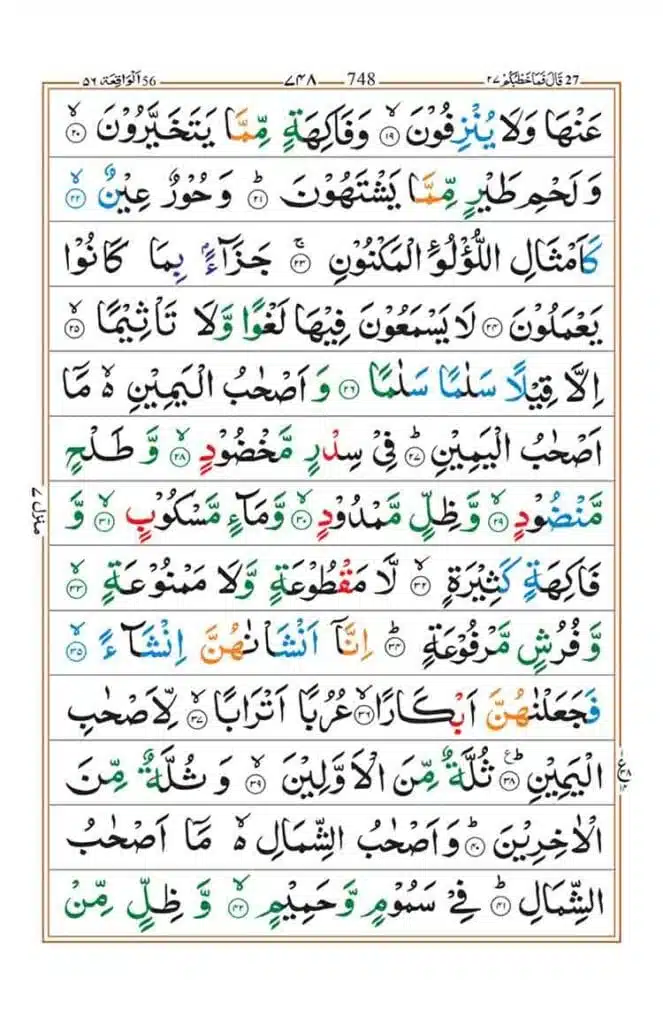 27 قَالَ فَمَا خَطْبُكُمْ ۲۷ 748 ۷۴۸ 56 اَلْوَاقِعَة ۵۶
عَنْهَا وَلَا يُنْزِفُوْنَ ۙ۱۹ وَفَاكِهَةٍ مِّمَّا يَتَخَيَّرُوْنَ ۙ۲۰
وَلَحْمِ طَيْرٍ مِّمَّا يَشْتَهُوْنَ ؕ۲۱ وَحُوْرٌ عِيْنٌ ۙ۲۲
كَاَمْثَالِ اللُّؤْلُؤِ الْمَكْنُوْنِ ۚ۲۳ جَزَآءًۢ بِمَا كَانُوْا
يَعْمَلُوْنَ ۲۴ لَا يَسْمَعُوْنَ فِيْهَا لَغْوًا وَّلَا تَاْثِيْمًا ۙ۲۵
اِلَّا قِيْلًا سَلٰمًا سَلٰمًا ۲۶ وَاَصْحٰبُ الْيَمِيْنِ ۙ۬ مَاۤ
اَصْحٰبُ الْيَمِيْنِ ؕ۲۷ فِيْ سِدْرٍ مَّخْضُوْدٍ ۙ۲۸ وَّطَلْحٍ
مَّنْضُوْدٍ ۙ۲۹ وَّظِلٍّ مَّمْدُوْدٍ ۙ۳۰ وَّمَآءٍ مَّسْكُوْبٍ ۙ۳۱ وَّ
فَاكِهَةٍ كَثِيْرَةٍ ۙ۳۲ لَّا مَقْطُوْعَةٍ وَّلَا مَمْنُوْعَةٍ ۙ۳۳
وَّفُرُشٍ مَّرْفُوْعَةٍ ؕ۳۴ اِنَّاۤ اَنْشَاْنٰهُنَّ اِنْشَآءً ۙ۳۵
فَجَعَلْنٰهُنَّ اَبْكَارًا ۙ۳۶ عُرُبًا اَتْرَابًا ۙ۳۷ لِّاَصْحٰبِ
الْيَمِيْنِ ؕ۳۸ ثُلَّةٌ مِّنَ الْاَوَّلِيْنَ ۙ۳۹ وَثُلَّةٌ مِّنَ
الْاٰخِرِيْنَ ؕ۴۰ وَاَصْحٰبُ الشِّمَالِ ۙ۬ مَاۤ اَصْحٰبُ
الشِّمَالِ ؕ۴۱ فِيْ سَمُوْمٍ وَّحَمِيْمٍ ۙ۴۲ وَّظِلٍّ مِّنْ
منزل ۷